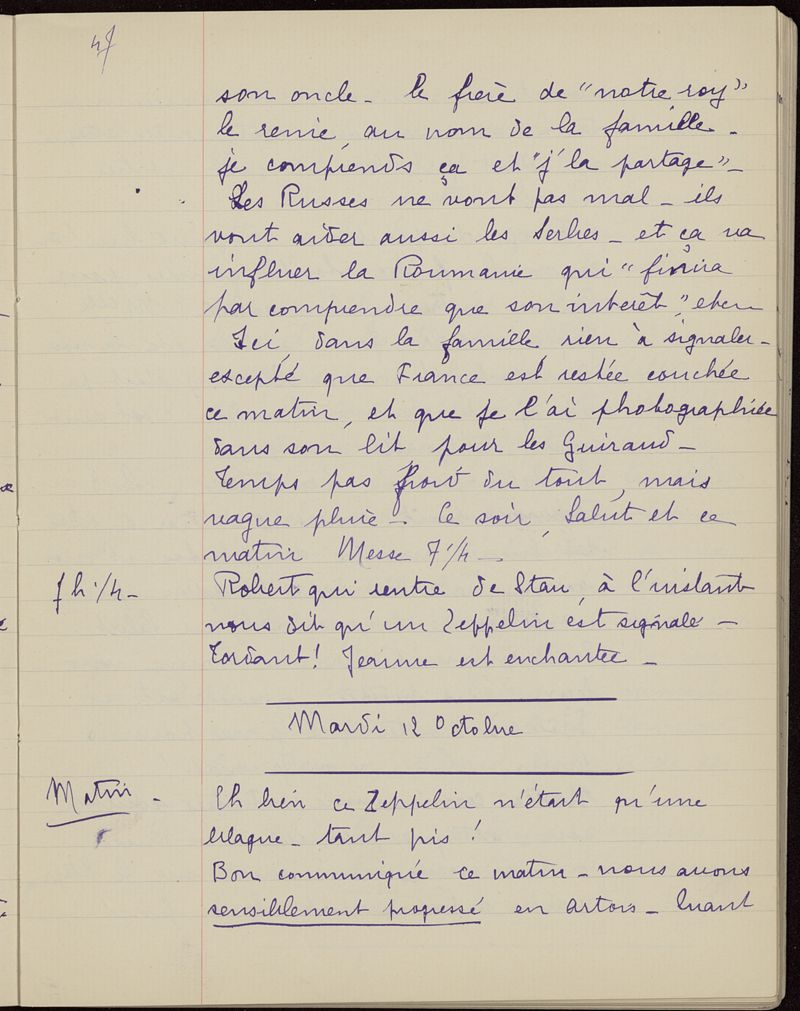 47
son oncle - le frère de "notre roy"
le renie, au nom de la famille -
je comprends ça et "j'la partage" -
Les Russes ne vont pas mal - ils
vont aider aussi les Serbes - et ça va
influer la Roumanie qui "finira
par comprendre que son intérêt", etc -
Ici, dans la famille, rien à signaler -
excepté que France est restée couchée
ce matin, et que je l'ai photographiée
dans son lit pour les Guiraud -
Temps pas froid du tout, mais
vague pluie - Ce soir, Salut et ce
matin Messe 7 1/4 -
7 h 1/4 -
Robert qui rentre de Stan, à l'instant
nous dit qu'un Zeppelin est signalé -
Tordant! Jeanne est enchantée -
Mardi 12 Octobre
Matin -
Eh bien ce Zeppelin n'était qu'une
blague - tant pis!
Bon communiqué ce matin - nous avons
sensiblement progressé en Artois - Quant